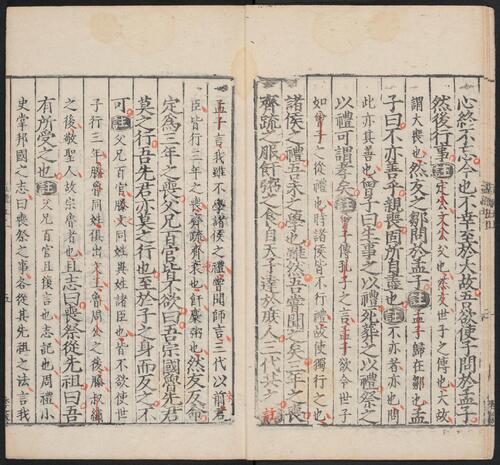 心終不忘今也不幸至於大故吾欲使子問於孟子
然後行事註定公文公父也然友世子之傅也大故
謂大喪也然友之鄒問於孟子註孟子歸在鄒也孟
子曰不亦善乎親喪固所自盡也註不亦者亦也問
此亦其善也曾子曰生事之以禮死葬之以禮祭之
以禮可謂孝矣註曾子傳孔子之言孟子欲令世子
如曾子之從禮也時諸侯皆不行禮故使獨行之也
諸侯之禮吾未之學也雖然吾嘗聞之矣三年之喪
齊疏之服飦粥之食自天子達於庶人三代共之註
孟子言我雖不學諸侯之禮嘗聞師言三代以前君
臣皆行三年之喪齊疏齊衰也飦糜粥也然友反命
定為三年之喪父兄百官皆不欲曰吾宗國魯先君
莫之行吾先君亦莫之行也至於子之身而反之不
可註父兄百官滕文同姓異姓諸臣也皆不欲使世
子行三年滕魯同姓俱出文王魯周公之後滕叔繡
之後敬聖人故宗魯者也且志曰喪祭從先祖曰吾
有所受之也註父兄百官且復言也志記也周禮小
史掌邦國之志曰喪祭之事各從其先祖之法言我